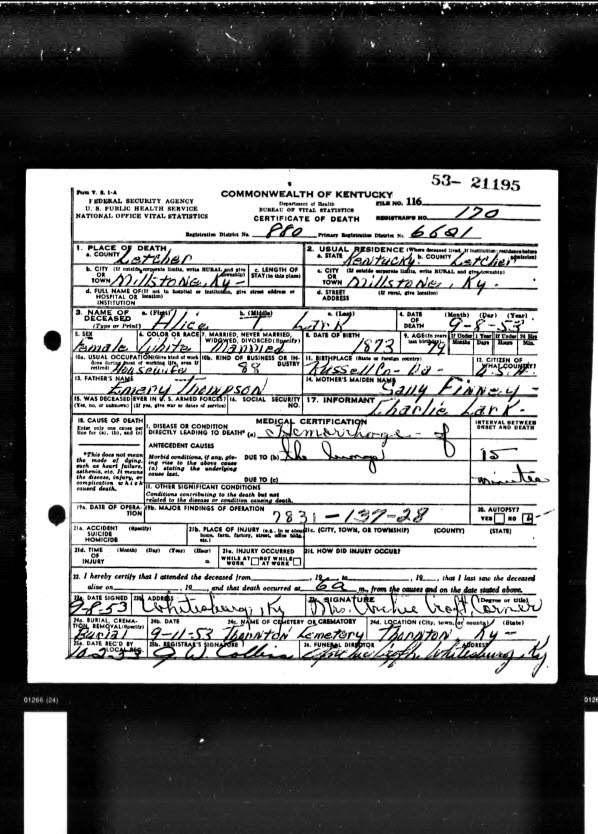 53- 21195
Form V. S. 1-A
FEDERAL SECURITY AGENCY
U. S. PUBLIC HEALTH SERVICE
NATIONAL OFFICE VITAL STATISTICS
COMMONWEALTH OF KENTUCKY
Department of Health
BUREAU OF VITAL STATISTICS
CERTIFICATE OF DEATH
FILE NO. 116
REGISTRAR'S NO. 170
Registration District No. 880 Primary Registration District No. 6621
1. PLACE OF DEATH
a. COUNTY Letcher
2. USUAL RESIDENCE (Where deceased lived. If institution: residence before admission)
a. STATE Kentucky b. COUNTY Letcher
b. CITY (If outside corporate limits, write RURAL and give township)
OR TOWN Millstone, Ky -
c. LENGTH OF STAY (in this place)
c. CITY (If outside corporate limits, write RURAL and give township)
OR TOWN Millstone, Ky.
d. FULL NAME OF (If not in hospital or institution, give street address or location)
HOSPITAL OR INSTITUTION
d. STREET ADDRESS (If rural, give location)
3. NAME OF DECEASED (Type or Print)
a. (First) Alice b. (Middle) c. (Last) Lark
4. DATE OF DEATH (Month) (Day) (Year)
9-8-53
5. SEX
Female
6. COLOR OR RACE
White
7. MARRIED, NEVER MARRIED, WIDOWED, DIVORCED (Specify)
Married
8. DATE OF BIRTH
1873
9. AGE (in years last birthday)
79
If Under 1 Year Months Days
If Under 24 Hrs Hours Min.
10a. USUAL OCCUPATION (Give kind of work done during most of working life, even if retired)
Housewife
10b. KIND OF BUSINESS OR INDUSTRY
88
11. BIRTHPLACE (State or foreign country)
Russell Co - Va -
12. CITIZEN OF WHAT COUNTRY?
U.S.A.
13. FATHER'S NAME
Emery Thompson
14. MOTHER'S MAIDEN NAME
Sally Finney -
15. WAS DECEASED EVER IN U. S. ARMED FORCES?
(Yes, no, or unknown) (If yes, give war or dates of service)
16. SOCIAL SECURITY NO.
17. INFORMANT
Charlie Lark -
18. CAUSE OF DEATH
Enter only one cause per line for (a), (b), and (c)
*This does not mean the mode of dying, such as heart failure, asthenia, etc. It means the disease, injury, or complication which caused death.
MEDICAL CERTIFICATION
I. DISEASE OR CONDITION DIRECTLY LEADING TO DEATH* (a) Hemorrhage - of
ANTECEDENT CAUSES
Morbid conditions, if any, giving rise to the above cause (a) stating the underlying cause last.
DUE TO (b) the lungs
DUE TO (c)
INTERVAL BETWEEN ONSET AND DEATH
15
minutes
II. OTHER SIGNIFICANT CONDITIONS
Conditions contributing to the death but not related to the disease or condition causing death.
19a. DATE OF OPERATION
19b. MAJOR FINDINGS OF OPERATION
7831-137-28
20. AUTOPSY?
YES NO
21a. ACCIDENT SUICIDE HOMICIDE (Specify)
21b. PLACE OF INJURY (e.g., in or about home, farm, factory, street, office bldg., etc.)
21c. (CITY, TOWN, OR TOWNSHIP) (COUNTY) (STATE)
21d. TIME OF INJURY (Month) (Day) (Year) (Hour) m.
21e. INJURY OCCURRED
WHILE AT WORK NOT WHILE AT WORK
21f. HOW DID INJURY OCCUR?
22. I hereby certify that I attended the deceased from , 19 to , 19 , that I last saw the deceased
alive on , 19 , and that death occurred at 6a m., from the causes and on the date stated above.
23a. DATE SIGNED
9-8-53
23b. ADDRESS
Whitesburg, Ky
23c. SIGNATURE (Degree or title)
Mrs. Archie Craft Coroner
24a. BURIAL, CREMATION, REMOVAL (Specify)
Burial
24b. DATE
9-11-53
24c. NAME OF CEMETERY OR CREMATORY
Thornton Cemetery
24d. LOCATION (City, town, or county) (State)
Thornton, Ky -
25a. DATE REC'D BY LOCAL REG.
25b. REGISTRAR'S SIGNATURE
G. W. Collins
26. FUNERAL DIRECTOR ADDRESS
Whitesburg, Ky
01266 (24)